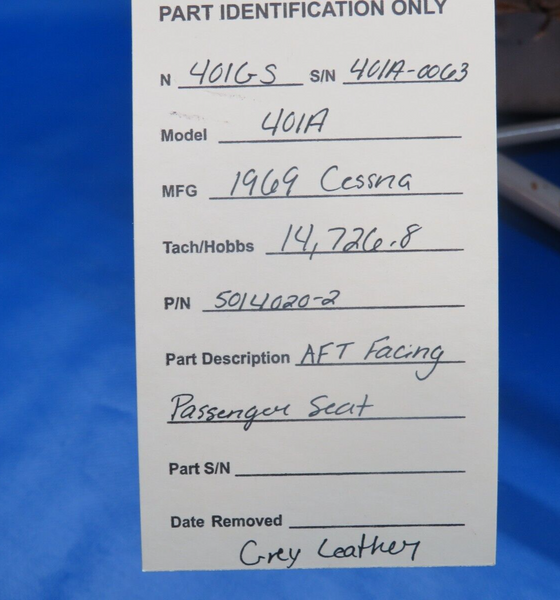 PART IDENTIFICATION ONLY
N 401GS S/N 401A-0063
Model 401A
MFG 1969 Cessna
Tach/Hobbs 14,726.8
P/N 5014020-2
Part Description AFT Facing
Passenger Seat
Part S/N
Date Removed
Grey Leather